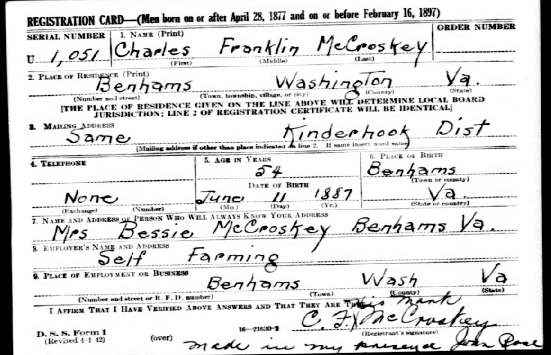 REGISTRATION CARD—(Men born on or after April 28, 1877 and on or before February 16, 1897)
SERIAL NUMBER 1. NAME (Print) ORDER NUMBER
U 1,051 Charles Franklin McCroskey
(First) (Middle) (Last)
2. PLACE OF RESIDENCE (Print)
Benhams Washington Va.
(Number and street) (Town, township, village, or city) (County) (State)
[THE PLACE OF RESIDENCE GIVEN ON THE LINE ABOVE WILL DETERMINE LOCAL BOARD
JURISDICTION; LINE 2 OF REGISTRATION CERTIFICATE WILL BE IDENTICAL]
3. MAILING ADDRESS
Same Kinderhook Dist
[Mailing address if other than place indicated on line 2. If same insert word same]
4. TELEPHONE 5. AGE IN YEARS 6. PLACE OF BIRTH
54 Benhams
(Town or county)
DATE OF BIRTH
None June 11 1887 Va.
(Exchange) (Number) (Mo.) (Day) (Yr.) (State or country)
7. NAME AND ADDRESS OF PERSON WHO WILL ALWAYS KNOW YOUR ADDRESS
Mrs Bessie McCroskey Benhams Va.
8. EMPLOYER'S NAME AND ADDRESS
Self Farming
9. PLACE OF EMPLOYMENT OR BUSINESS
Benhams Wash Va
(Number and street or R. F. D. number) (Town) (County) (State)
I AFFIRM THAT I HAVE VERIFIED ABOVE ANSWERS AND THAT THEY ARE
his mark
C. F. X McCroskey
D. S. S. Form 1 (Registrant's signature)
(Revised 4-1-42) (over) made in my presence